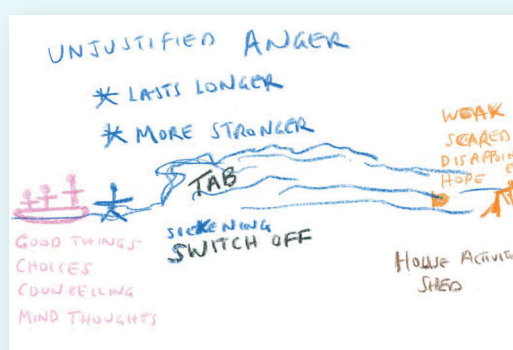 UNJUSTIFIED ANGER
* LASTS LONGER
* MORE STRONGER
WEAK
SCARED
DISAPPOIN
HOPE
TAB
SICKENING
SWITCH OFF
GOOD THINGS
CHOICES
COUNCELLING
MIND THOUGHTS
HOUSE ACTIVIT
SHED